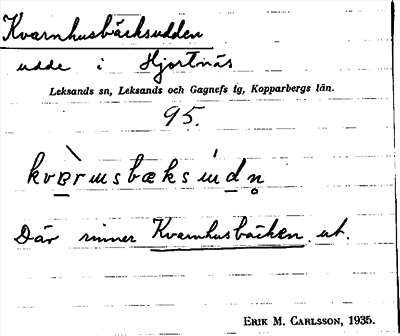 Kvarnhusbäcksudden
udde i Hjortnäs
Leksands sn, Leksands och Gagnefs tg, Kopparbergs län.
95.
Där rinner Kvarnhusbäcken ut.
ERIK M. CARLSSON, 1935.